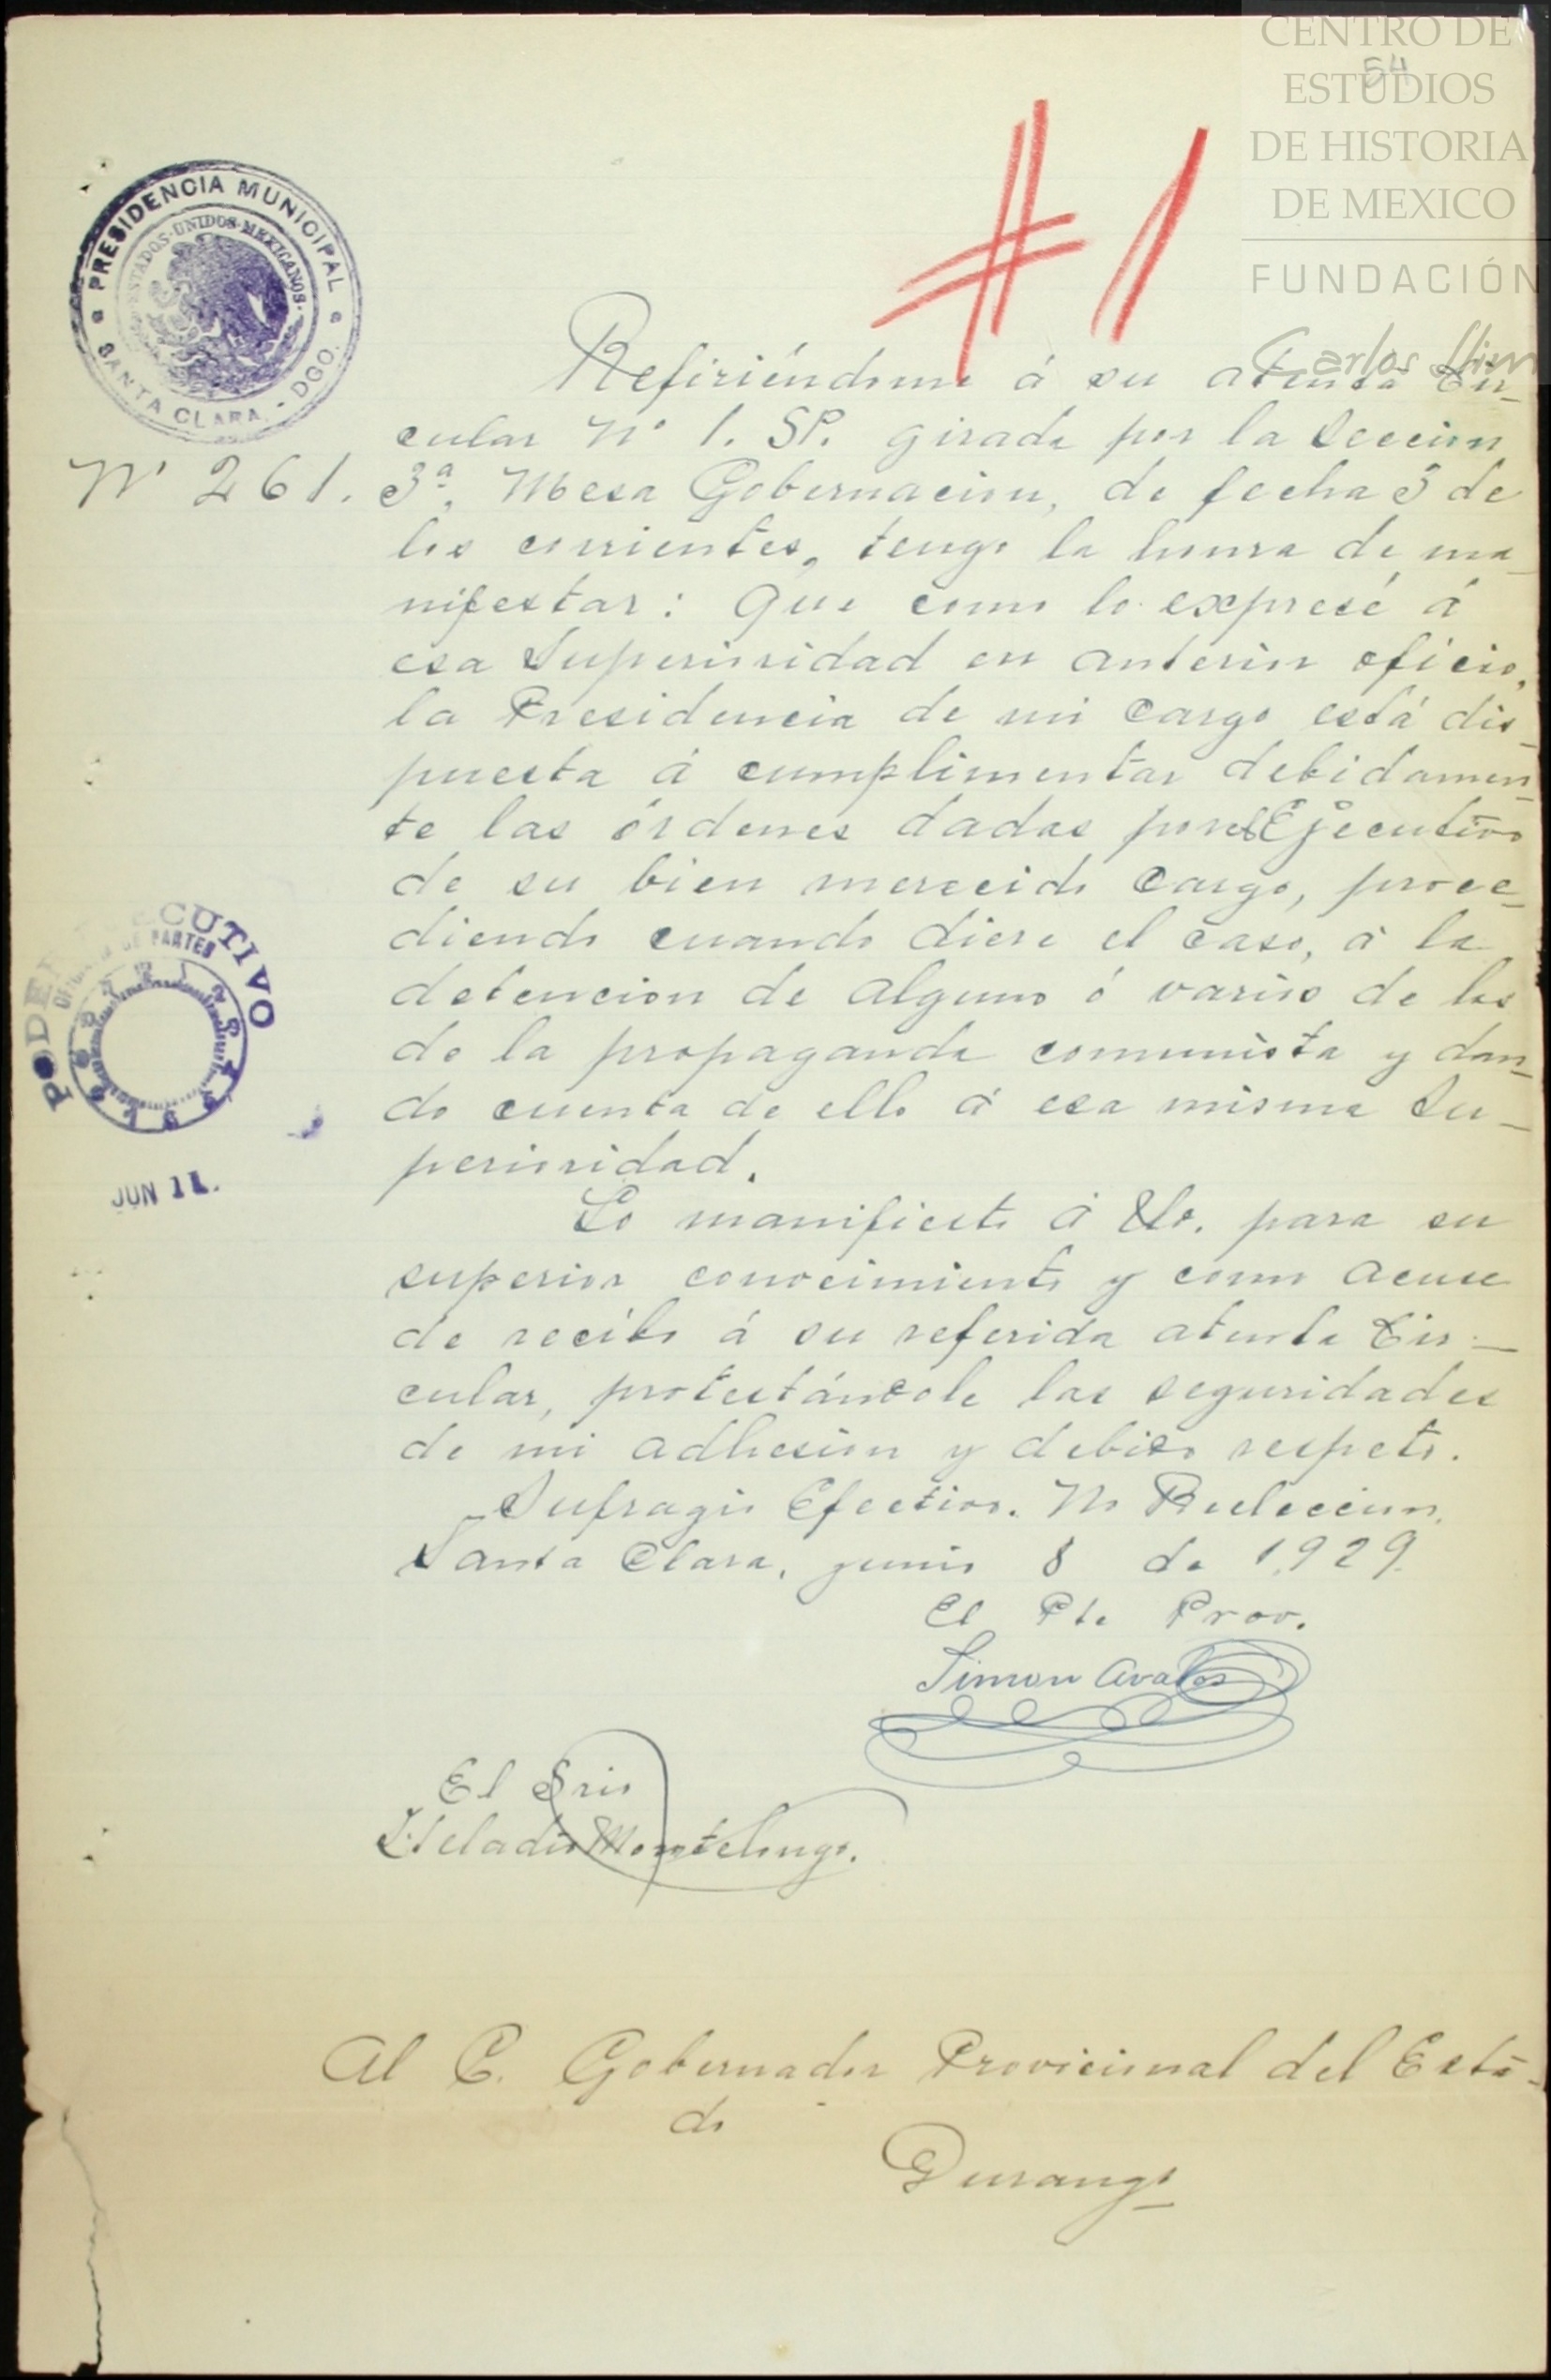 CENTRO DE
ESTUDIOS
DE HISTORIA
DE MEXICO
FUNDACIÓN
Carlos Slim
54
# 1
PRESIDENCIA MUNICIPAL
ESTADOS·UNIDOS·MEXICANOS.
SANTA CLARA.-DGO.
Refiriéndome á su atenta Cir-
cular Nº 1. SP. girada por la Seccion
Nº 261.
3ª, Mesa Gobernacion, de fecha 5 de
los corrientes, tengo la honra de ma-
nifestar: Que como lo expresé á
esa Superioridad en anterior oficio,
la Presidencia de mi cargo está dis-
puesta á cumplimentar debidamen-
te las órdenes dadas por el Ejecutivo
de su bien merecido cargo, proce-
diendo cuando diere el caso, á la
detencion de alguno ó varios de los
de la propaganda comunista y dan-
do cuenta de ello á esa misma Su-
perioridad.
PODER EJECUTIVO
OFICIALIA DE PARTES
JUN 11.
Lo manifiesto á Ud. para su
superior conocimiento y como acuse
de recibo á su referida atenta Cir-
cular, protestándole las seguridades
de mi adhesion y debido respeto.
Sufragio Efectivo. No Reeleccion.
Santa Clara, junio 8 de 1,929.
El Pte Prov.
Simon Avalos
El Srio
Montelongo.
Al C. Gobernador Provicional del Esta-
do
Durango